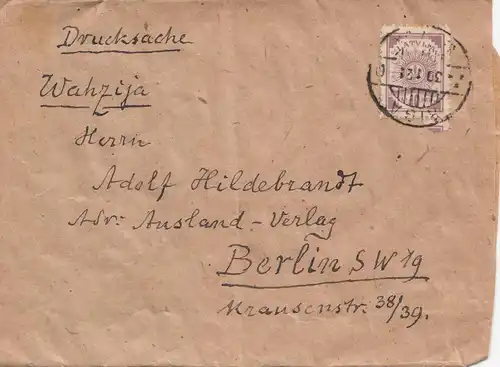 Drucksache
LATVIJA
RIGA
Wahzija
Herrn
Adolf Hildebrandt
Adr: Ausland-Verlag
Berlin SW 19
Krausenstr. 38/39.